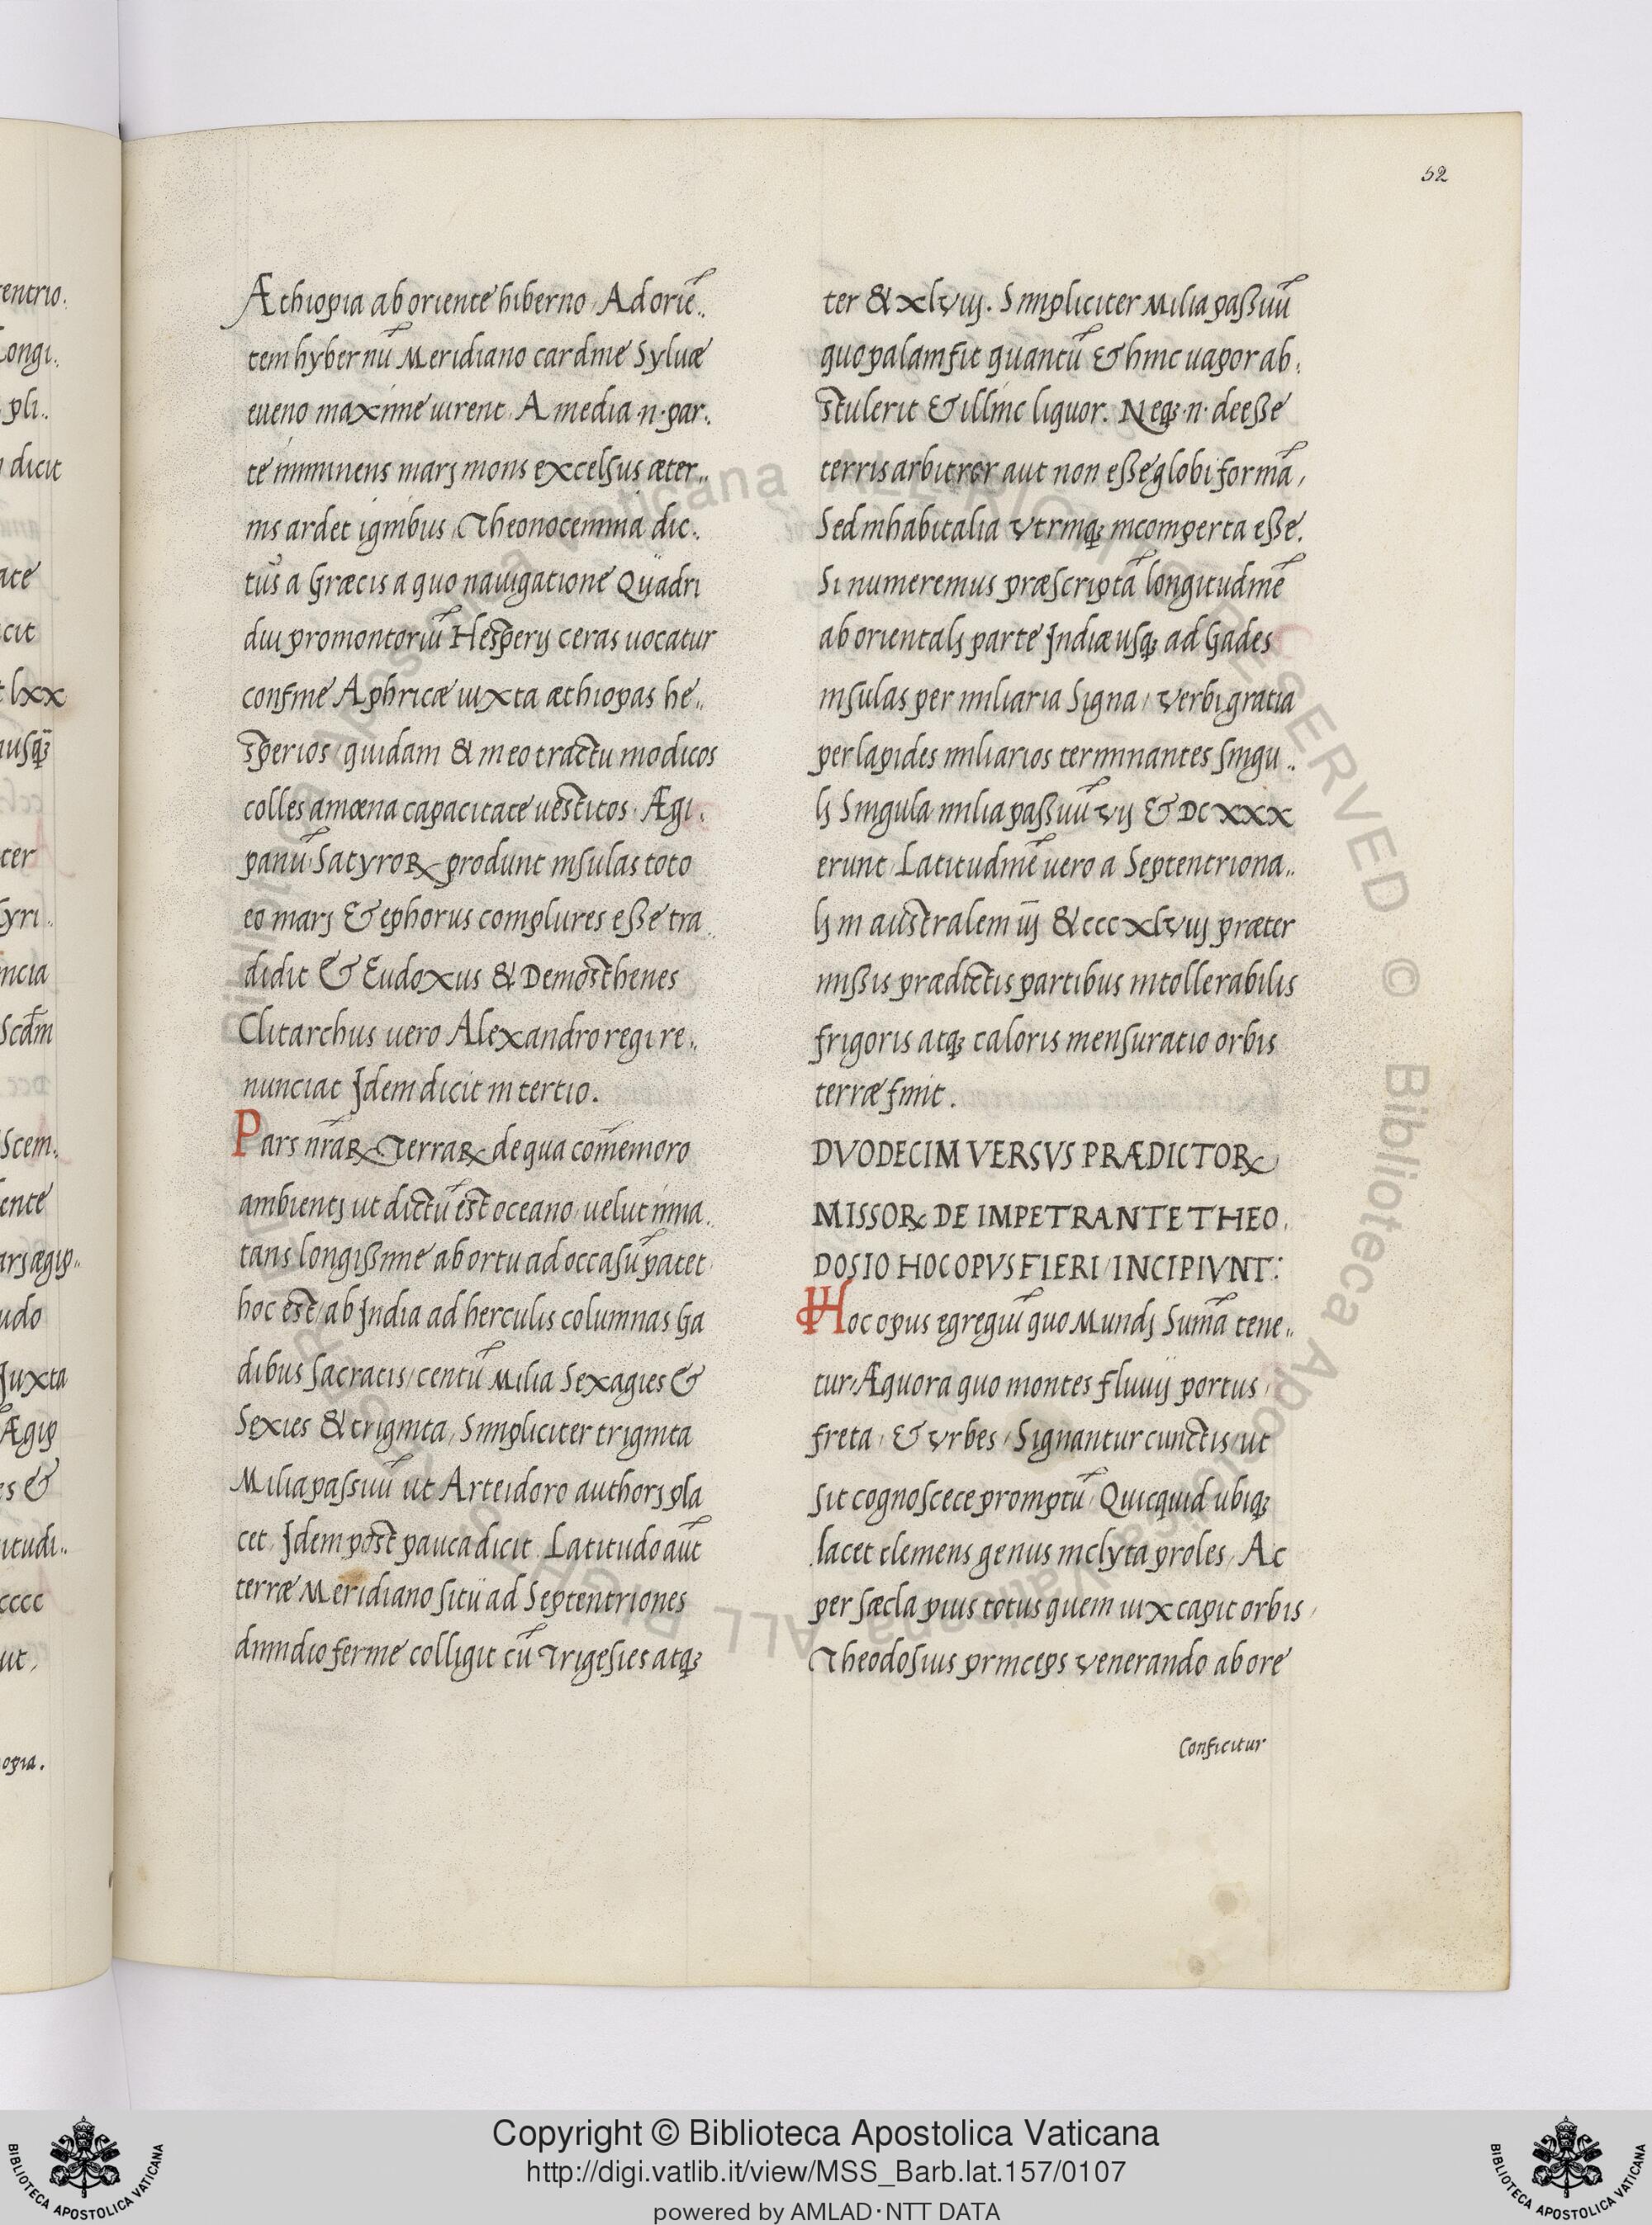 52
Æthiopia ab oriente hiberno Ad oriē..
tem hybernū Meridiano cardine Syluæ
eueno maxime uirent A media .n. par.
te imminens marj mons excelsus æter..
nis ardet ignibus Theonocemma dic..
tus a Græcis a quo nauigatione Quadri
dui promontoriū Hesperij ceras uocatur
confine Aphricæ iuxta æthiopas he..
sperios / quidam & in eo tractu modicos
colles amœna capacitate uestitos. Ægi.
panū Satyroꝝ produnt insulas toto
eo marj & ephorus complures esse tra..
didit & Eudoxus & Demosthenes
Clitarchus uero Alexandro regi re..
nunciat Idem dicit in tertio.
Pars nr̄aꝝ Terraꝝ de qua com̄emoro
ambientj ut dictū est oceano uelut inna.
tans longissime ab ortu ad occasū patet
hoc est / ab India ad herculis columnas Ga
dibus sacratis / centū Milia Sexagies &
Sexies & triginta, Simpliciter triginta
Milia passuū ut Arteidoro authorj pla
cet. Idem post pauca dicit Latitudo aūt
terræ Meridiano situ ad Septentriones
dimidio ferme colligit cū Trigesies atqꝫ
ter & xlviij. Simpliciter Milia passuū
quo palam fit quantū & hinc uapor ab.
stulerit & illinc liquor. Neqꝫ .n. deesse
terris arbitror aut non esse globi formā,
Sed inhabitalia vtrinqꝫ incomperta esse.
Si numeremus præscriptā longitudinē
ab orientalj parte Indiæ usqꝫ ad Gades
insulas per miliaria Signa / verbi gratia
per lapides miliarios terminantes singu..
lj Singula milia passuū vij & DCxxx
erunt Latitudinē uero a Septentriona..
lj in australem iij & cccxlviij præter
missis prædictis partibus intollerabilis
frigoris atqꝫ caloris mensuratio orbis
terræ finit.
DVODECIM VERSVS PRÆDICTOꝝ
MISSOꝝ DE IMPETRANTE THEO.
DOSIO HOC OPVS FIERI / INCIPIVNT:
Hoc opus egregiū quo Mundj Sum̄a tene..
tur / Æquora quo montes fluuij portus /
freta / & vrbes / Signantur cunctis / ut
sit cognoscece promptū / Quicquid ubiqꝫ
lacet clemens genus inclyta proles / Ac
per sæcla pius totus quem uix capit orbis /
Theodosius princeps venerando ab ore
Conficitur
entrio.
Longi..
pli..
dicit
ate
cit
lxx
ausqꝫ
ter
Syri..
incia
Scdm
Scem.
ente
arj ægip..
udo
Juxta
Ægip
es &
itudi..
cccc
ut,
opia.
Biblioteca Apostolica Vaticana ALL RIGHTS RESERVED ©
Copyright © Biblioteca Apostolica Vaticana
http://digi.vatlib.it/view/MSS_Barb.lat.157/0107
powered by AMLAD·NTT DATA
BIBLIOTECA APOSTOLICA VATICANA
BIBLIOTECA APOSTOLICA VATICANA